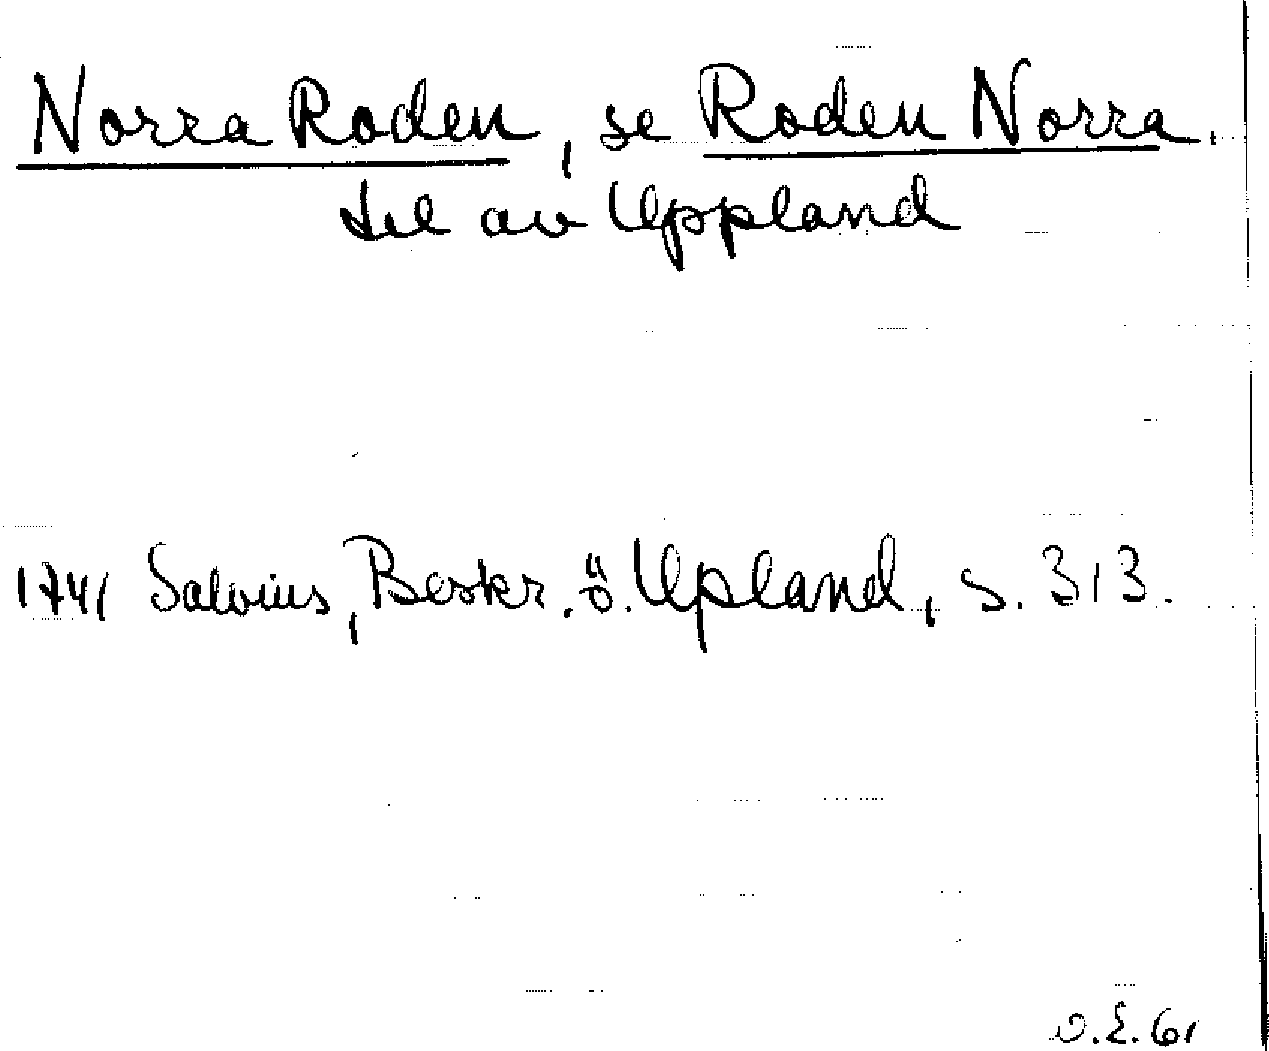 Norra Roden, se Roden Norra.
del av Uppland
1741 Salvius, Beskr. ö. Upland, s. 313.
v. E. 61